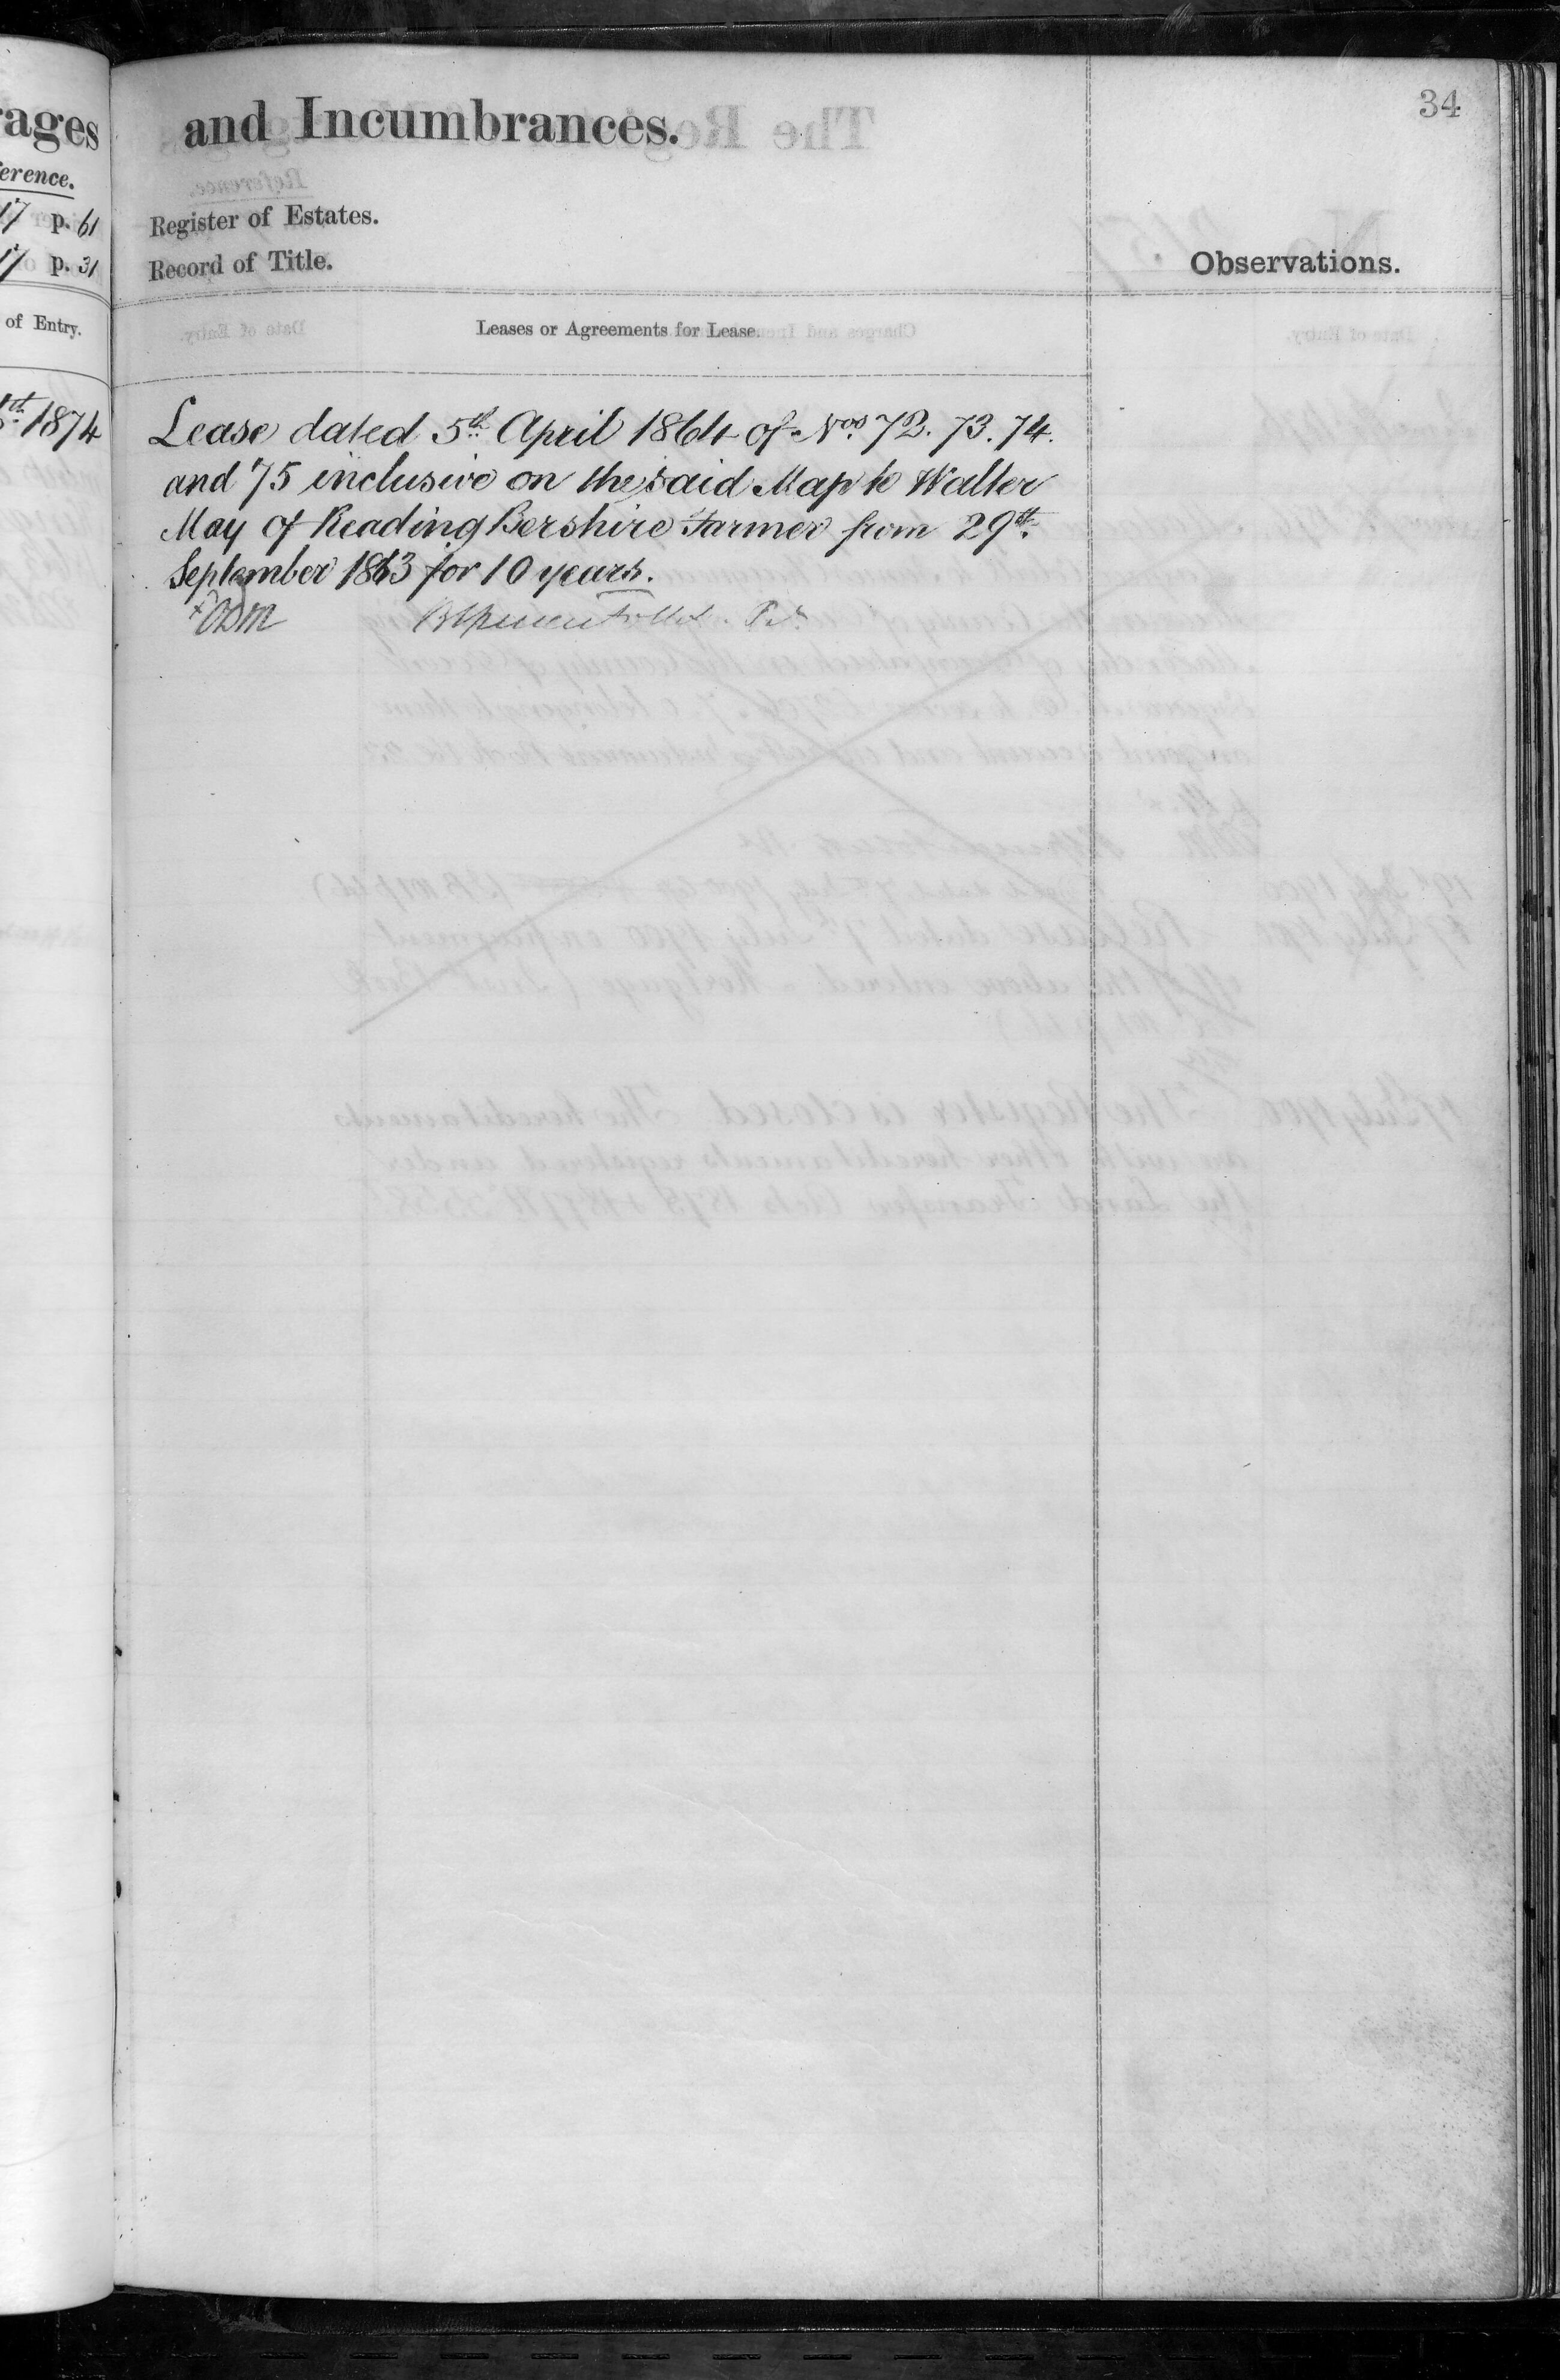 34
and Incumbrances.
Register of Estates.
Record of Title.
Observations.
Leases or Agreements for Lease.
Lease dated 5th April 1864 of Nos 72. 73. 74.
and 75 inclusive on the said Map to Walter
May of Reading Bershire Farmer from 29th
September 1863 for 10 years.
rages
erence.
17 p. 61
17 p. 31
of Entry.
1874